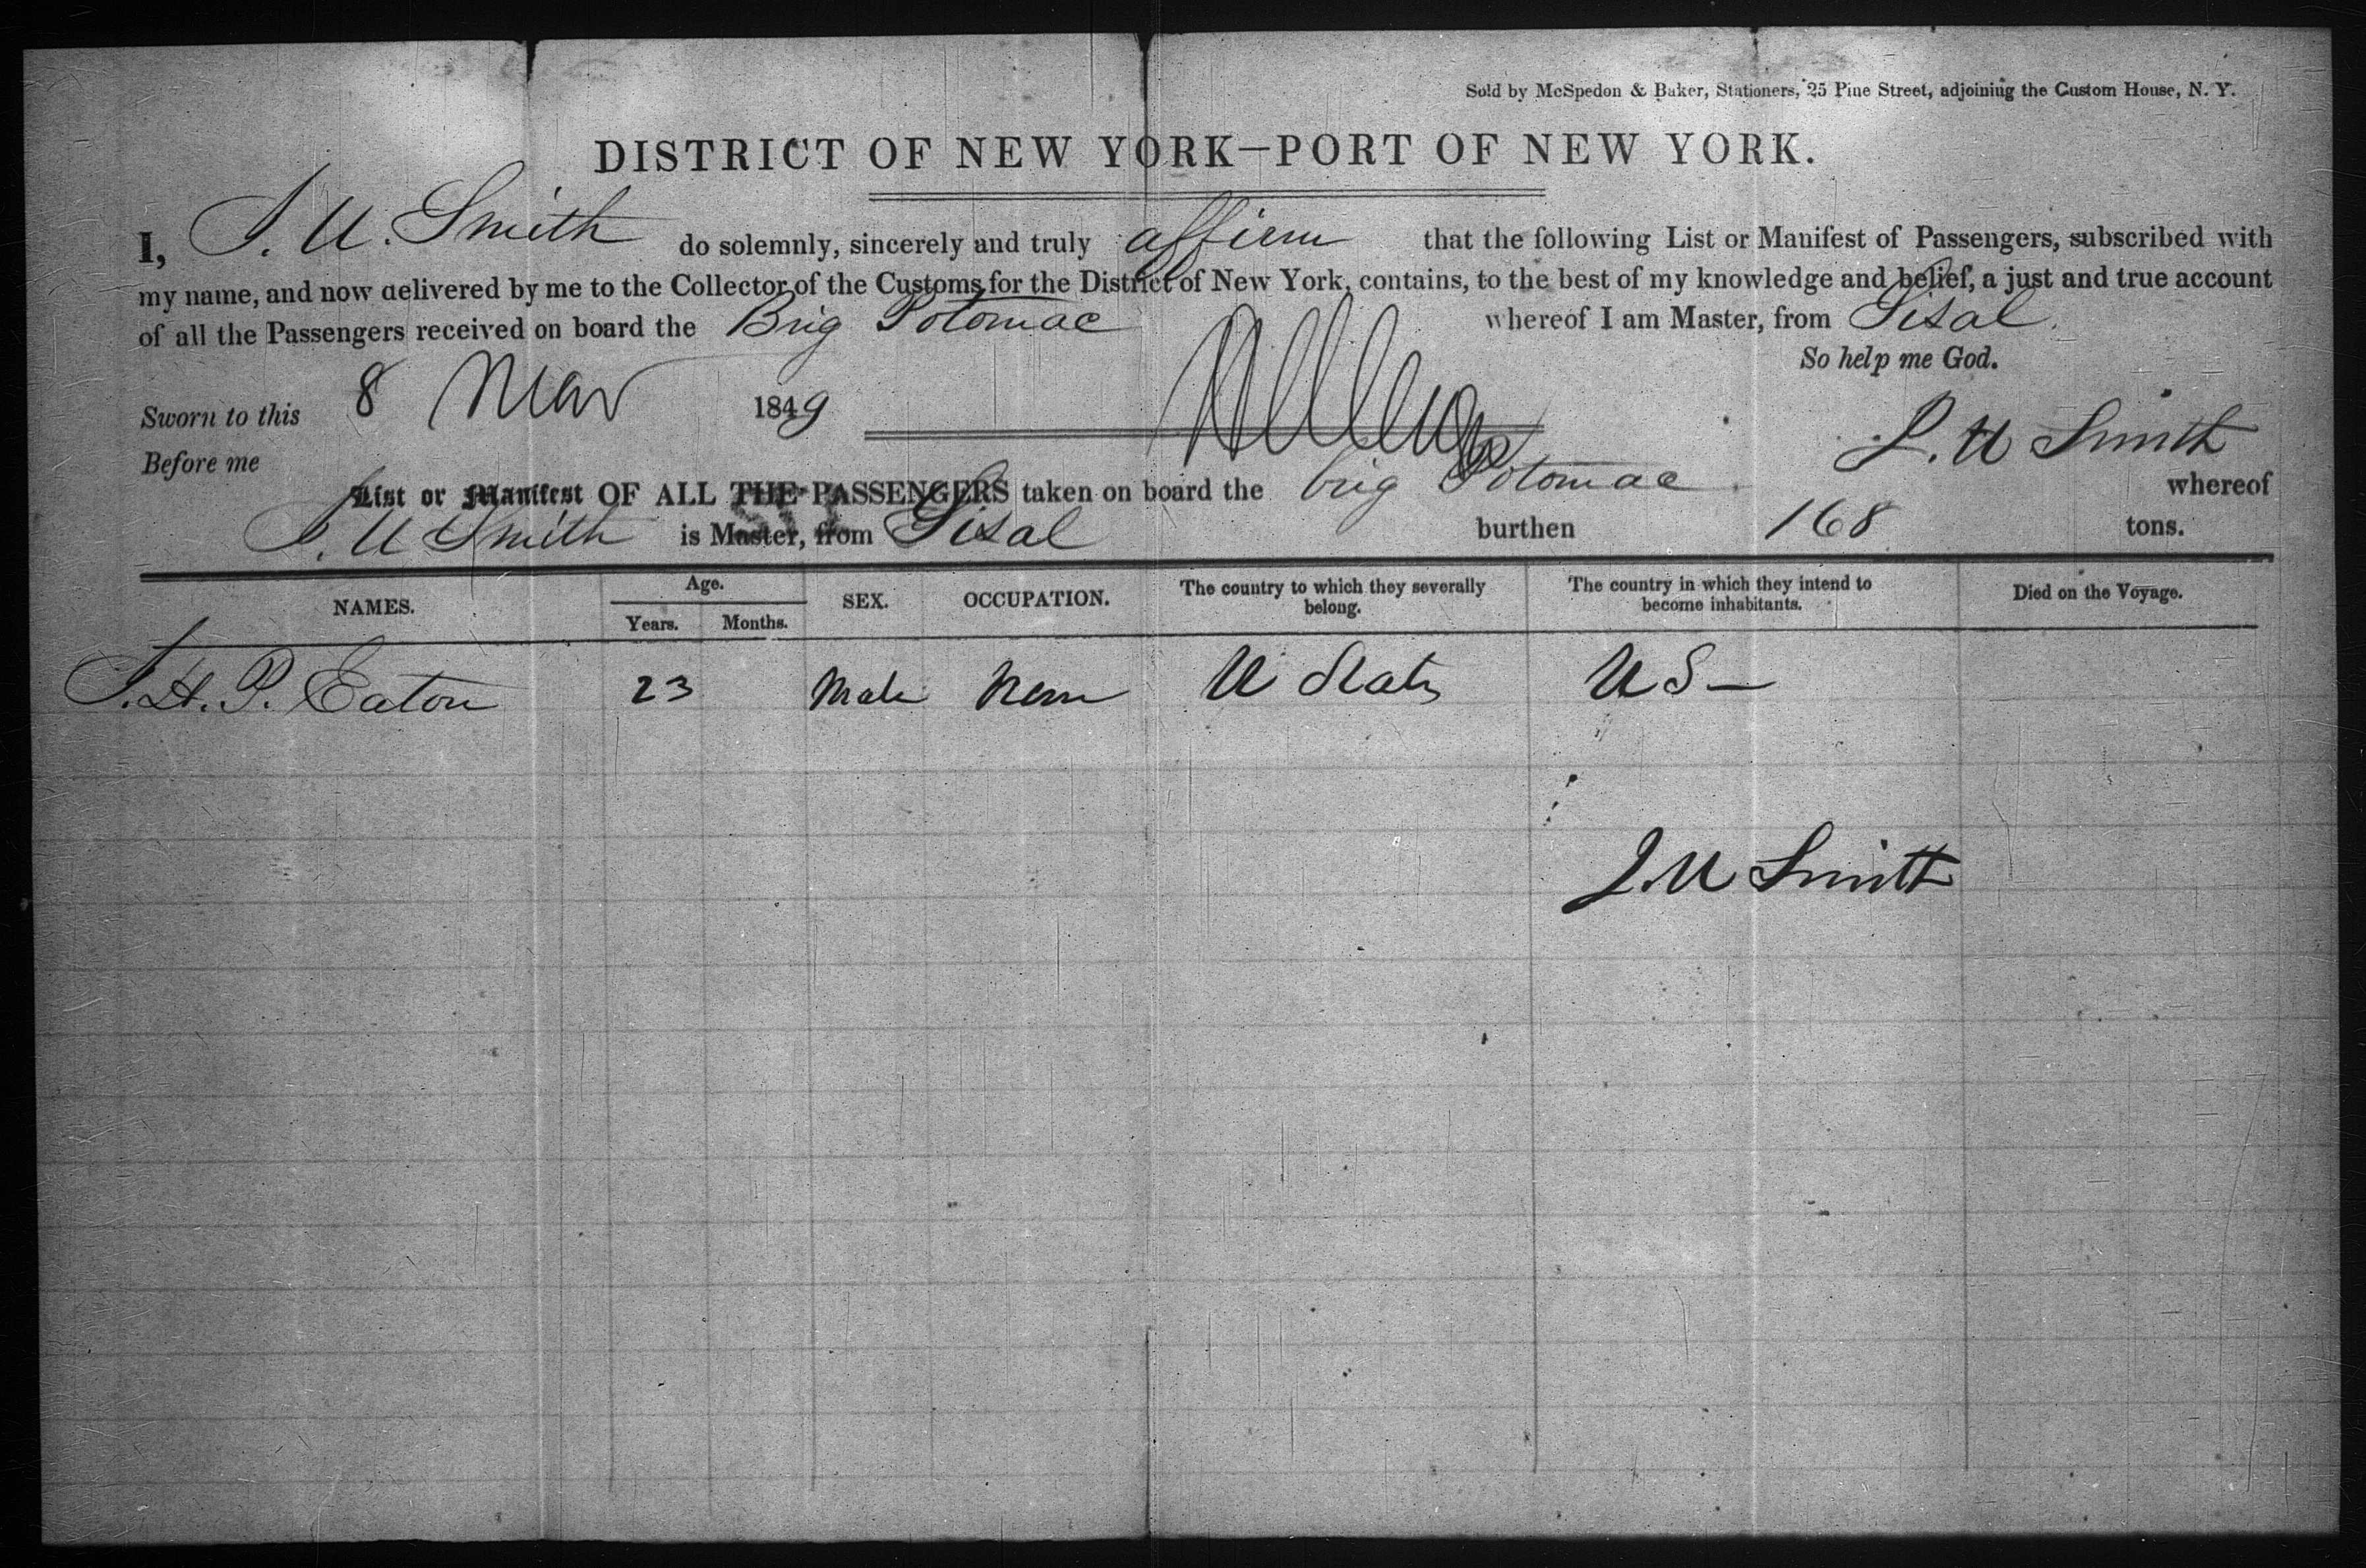 Sold by McSpedon & Baker, Stationers, 25 Pine Street, adjoining the Custom House, N. Y.
DISTRICT OF NEW YORK—PORT OF NEW YORK.
I, J. U. Smith do solemnly, sincerely and truly affirm that the following List or Manifest of Passengers, subscribed with
my name, and now delivered by me to the Collector of the Customs for the District of New York, contains, to the best of my knowledge and belief, a just and true account
of all the Passengers received on board the Brig Potomac whereof I am Master, from Sisal.
So help me God.
Sworn to this 8 Mar 1849
J. U Smith
Before me
List or Manifest OF ALL THE PASSENGERS taken on board the brig Potomac whereof
J. U Smith is Master, from Sisal burthen 168 tons.
NAMES. Age. Years. Months. SEX. OCCUPATION. The country to which they severally belong. The country in which they intend to become inhabitants. Died on the Voyage.
J. H. P. Eaton 23 Male U States U S —
J. U Smith